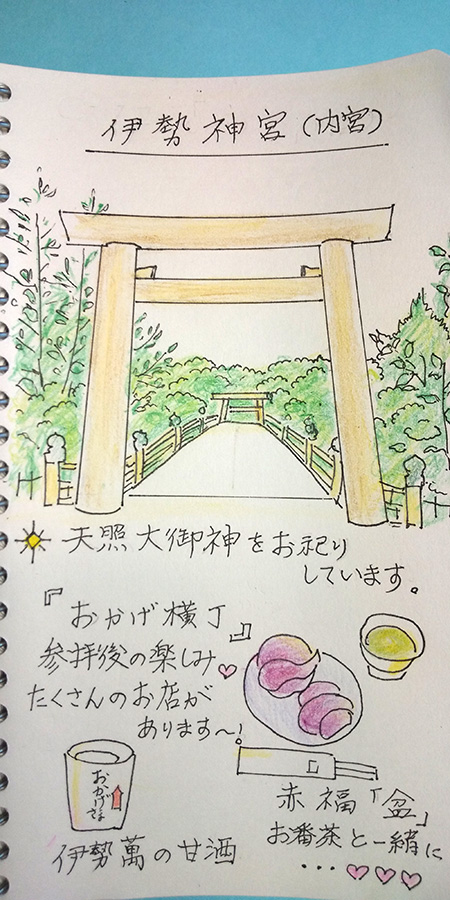 伊勢神宮(内宮)
天照大御神をお祀り
しています。
『おかげ横丁』
参拝後の楽しみ♡
たくさんのお店が
あります〜!
おかげさま
伊勢萬の甘酒
赤福「盆」
お番茶と一緒に
…♡♡♡